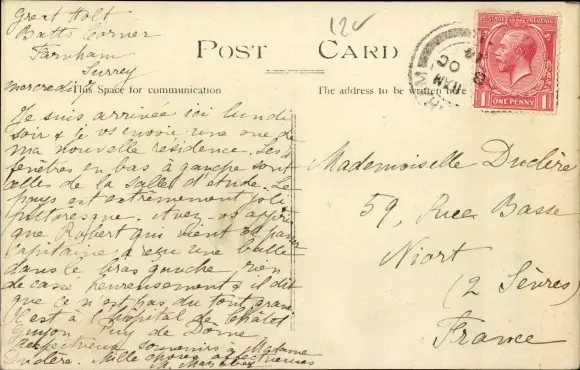 Great Holt
Batts Corner
Farnham
Surrey
mercredi 7
12
POST CARD
This Space for communication
The address to be written here
POSTAGE REVENUE
ONE PENNY
Je suis arrivée ici lundi
soir & je vs envoie une vue de
ma nouvelle résidence. Les
fenêtres en bas à gauche sont
celles de la salle d'étude. Le
pays est extrêmement joli
pittoresque. Avez-vs appris
que Robert qui vient de passer
Capitaine a reçu une balle
dans le bras gauche, rien
de cassé heureusement & il dit
que ce n'est pas du tout grave
Il est à l'hôpital de Châtel
Guyon Puy de Dôme
Respectueux souvenirs à Madame
Duclère. Mille choses affectueuses
M.
Mademoiselle Duclère
59, Rue Basse
Niort
(2 Sèvres)
France